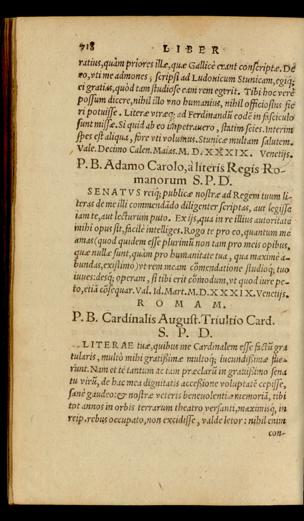 718 LIBER
ratius, quàm priores illæ, quæ Gallicè erant conscriptæ. De
eo, vti me admones, scripsi ad Ludonicum Stunicam, egiq;
ei gratias, quòd tam studiose eam rem egerit. Tibi hoc verè
possum dicere, nihil illo vno humanius, nihil officiosius fie
ri potuisse. Literæ vtræq; ad Ferdinandũ eodẽ in fasciculo
sunt missæ. Si quid ab eo impetrauero, statim scies. interim
spes est aliqua, fore vti volumus. Stunicæ multam salutem.
Vale. Decimo Calen. Maias. M. D. XXXIX. Venetijs.
P. B. Adamo Carolo, à literis Regis Ro-
manorum S. P. D.
SENATVS reiq; publicæ nostræ ad Regem tuum li-
teras de me illi commendãdo diligenter scriptas, aut legisse
iam te, aut lecturum puto. Ex ijs, qua in re illius autoritate
mihi opus sit, facilè intelliges. Rogo te pro eo, quantum me
amas (quod quidem esse plurimũ non tam pro meis opibus,
quæ nullæ sunt, quàm pro humanitate tua, qua maximè a-
bundas, existimo) vt rem meam cõmendatione studioq; tuo
iuues: desq; operam, si tibi erit cõmodum, vt quod iure pe-
to, etiã cõsequar. Val. Id. Mart. M. D. XXXIX. Venetijs.
ROMAM.
P. B. Cardinalis August. Triultio Card.
S. P. D.
LITERAE tuæ, quibus me Cardinalem esse factũ gra
tularis, multò mihi gratissimæ multoq; iucundissimæ fue-
runt. Nam et te tantum ac tam præclarũ in grauissimo sena
tu virũ, de hac mea dignitatis accessione voluptatẽ cepisse,
sanè gaudeo: & nostræ veteris beneuolentiæ memoriã, tibi
tot annos in orbis terrarum theatro versanti, maximisq; in
reip. rebus occupato, non excidisse, valde letor: nihil enim
con-